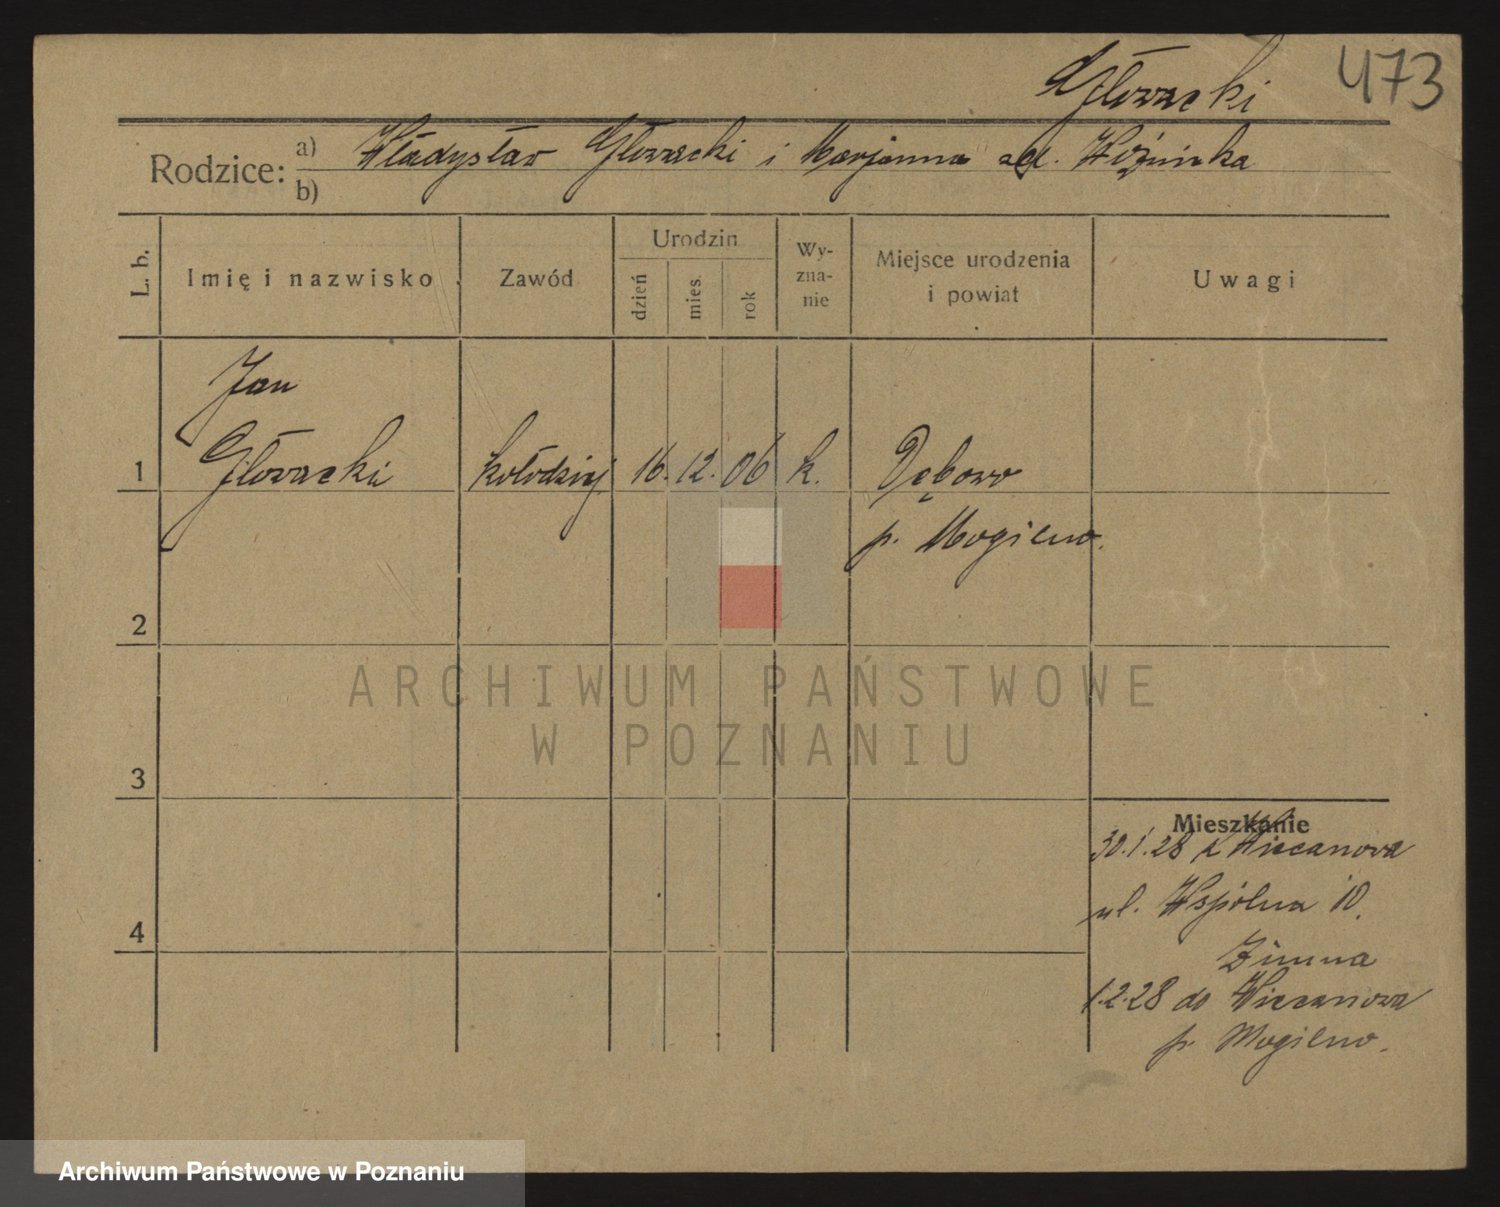 Głowacki 473
Rodzice: a) Władysław Głowacki i Marjanna zd. Woźnicka
b)
L. b. Imię i nazwisko Zawód Urodzin dzień mies. rok Wyznanie Miejsce urodzenia i powiat Uwagi
Jan
1 Głowacki kołodziej 16. 12. 06 k. Dębowo
p. Mogilno.
2
ARCHIWUM PAŃSTWOWE
W POZNANIU
3
Mieszkanie
30.1.28 z Wiecanowa
4 ul. Wspólna 10.
Zimna
1.2.28 do Wiecanowa
p. Mogilno.
Archiwum Państwowe w Poznaniu